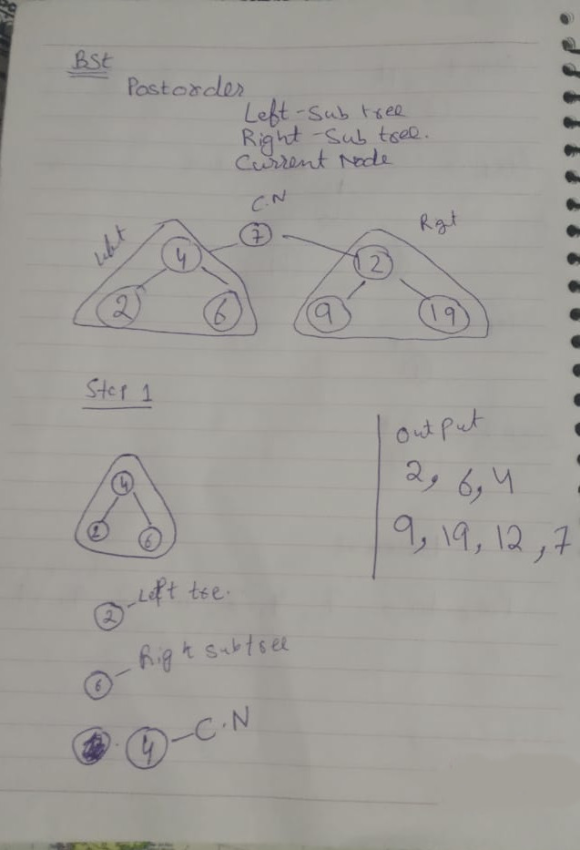 BSt
Postorder
Left-Sub tree
Right-Sub tree.
Current Node
C.N
7
Left
4
2 6
Rigt
12
9 19
Step 1
4
2 6
output
2, 6, 4
9, 19, 12, 7
2 - Left tre.
6 - Righ subtree
4 - C.N